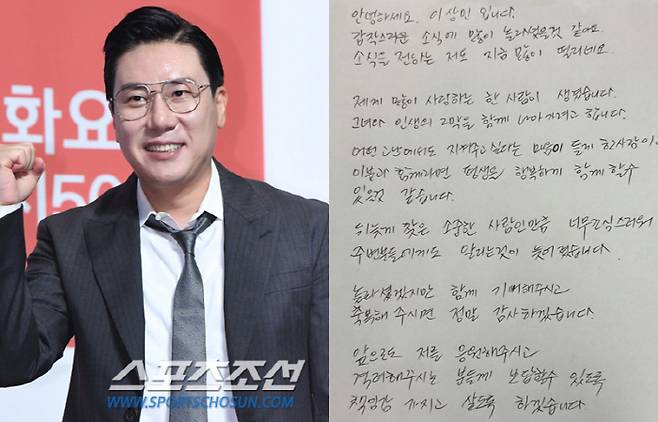 화요
50
스포츠조선
WWW.SPORTSCHOSUN.COM
안녕하세요. 이상민 입니다.
갑작스러운 소식에 많이 놀라셨을것 같아요.
소식을 전하는 저도 지금 많이 떨리네요.
제게 많이 사랑하는 한 사람이 생겼습니다.
그녀와 인생의 2막을 함께 나아가려고 합니다.
어떤 고난에서도 지켜주고 싶다는 마음이 들게 한 사람이
이분과 함께라면 평생을 행복하게 함께 할수
있을것 같습니다.
뒤늦게 찾은 소중한 사람인만큼 너무 조심스러워
주변분들에게도 알리는것이 늦어졌습니다.
놀라셨겠지만 함께 기뻐해주시고
축복해 주시면 정말 감사하겠습니다.
앞으로도 저를 응원해주시고
격려해주시는 분들께 보답할수 있도록
책임감 가지고 살도록 하겠습니다